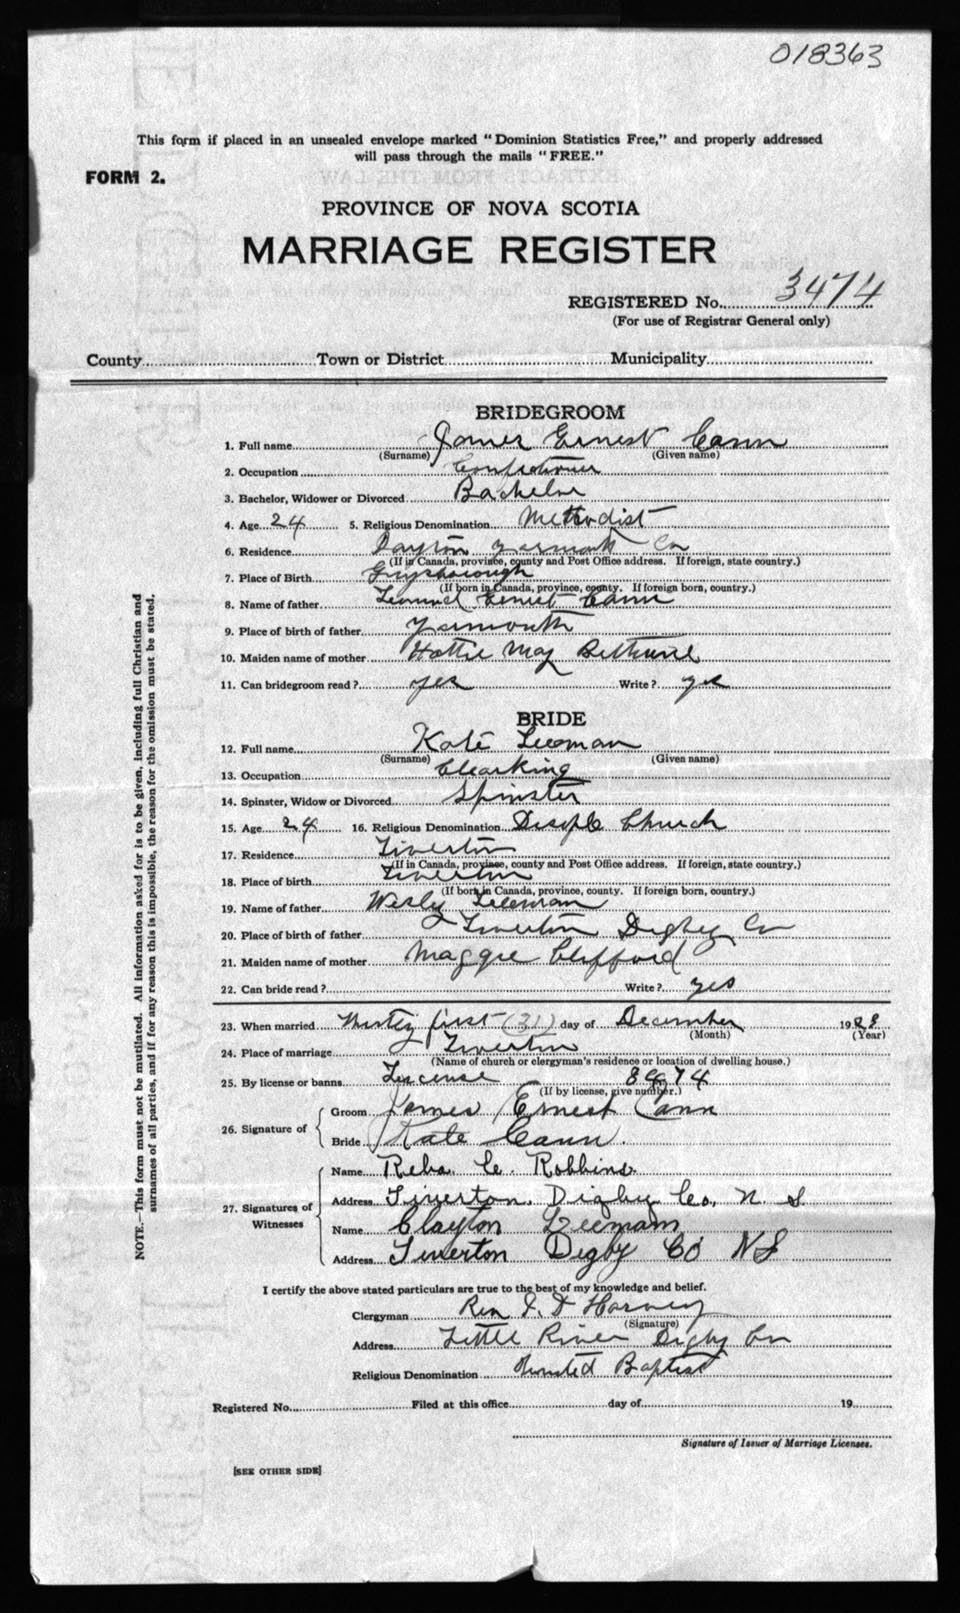 018363
This form if placed in an unsealed envelope marked "Dominion Statistics Free," and properly addressed
will pass through the mails "FREE."
FORM 2.
PROVINCE OF NOVA SCOTIA
MARRIAGE REGISTER
REGISTERED No. 3474
(For use of Registrar General only)
County Town or District Municipality
BRIDEGROOM
1. Full name James Ernest Cann
(Surname) (Given name)
2. Occupation Confectioner
3. Bachelor, Widower or Divorced Bachelor
4. Age 24 5. Religious Denomination Methodist
6. Residence Dayton Yarmouth Co
(If in Canada, province, county and Post Office address. If foreign, state country.)
7. Place of Birth Guysborough
(If born in Canada, province, county. If foreign born, country.)
8. Name of father Ernest Cann
9. Place of birth of father Yarmouth
10. Maiden name of mother Hattie May Bethune
11. Can bridegroom read? yes Write? yes
BRIDE
12. Full name Kate Leeman
(Surname) (Given name)
13. Occupation Clearking
14. Spinster, Widow or Divorced Spinster
15. Age 24 16. Religious Denomination Disciple Church
17. Residence Tiverton
(If in Canada, province, county and Post Office address. If foreign, state country.)
18. Place of birth Tiverton
(If born in Canada, province, county. If foreign born, country.)
19. Name of father Wesly Leeman
20. Place of birth of father Tiverton Digby Co
21. Maiden name of mother Maggie Clifford
22. Can bride read? Write? yes
23. When married Thirty first (31) day of December 1923
(Month) (Year)
24. Place of marriage Tiverton
(Name of church or clergyman's residence or location of dwelling house.)
25. By license or banns License 8474
(If by license, give number.)
26. Signature of Groom James Ernest Cann
Bride Kate Cann.
27. Signatures of Witnesses
Name Reba C. Robbins
Address Tiverton, Digby Co, N. S
Name Clayton Leemam
Address Tiverton Digby Co NS
I certify the above stated particulars are true to the best of my knowledge and belief.
Clergyman Rev Harvey
(Signature)
Address Little River Digby Co
Religious Denomination United Baptist
Registered No. Filed at this office day of 19
Signature of Issuer of Marriage Licenses.
[SEE OTHER SIDE]
NOTE.—This form must not be mutilated. All information asked for is to be given, including full Christian and
surnames of all parties, and if for any reason this is impossible, the reason for the omission must be stated.